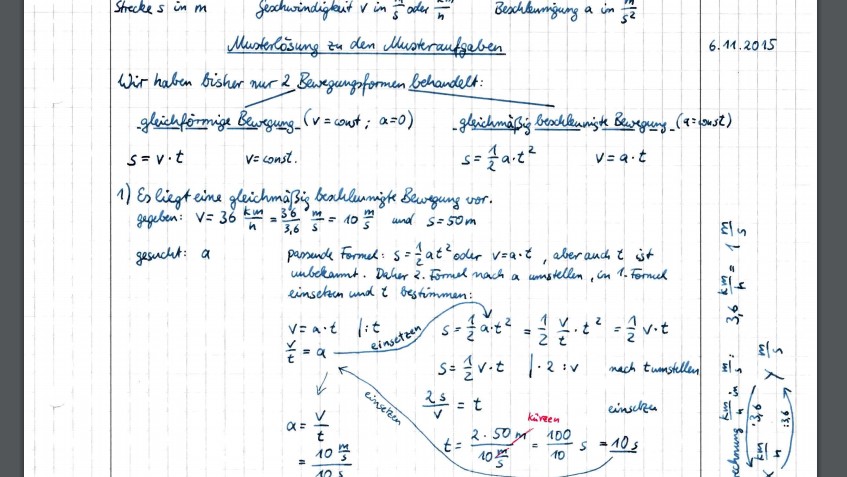 Strecke s in m Geschwindigkeit v in m/s oder km/h Beschleunigung a in m/s²
Musterlösung zu den Musteraufgaben 6.11.2015
Wir haben bisher nur 2 Bewegungsformen behandelt:
gleichförmige Bewegung (v = const ; a=0) gleichmäßig beschleunigte Bewegung (a=const)
s = v · t v = const. s = 1/2 a · t² v = a · t
1) Es liegt eine gleichmäßig beschleunigte Bewegung vor.
gegeben: v = 36 km/h = 36/3,6 m/s = 10 m/s und s = 50 m
gesucht: a passende Formel: s = 1/2 at² oder v = a·t , aber auch t ist
unbekannt. Daher 2. Formel nach a umstellen, in 1. Formel
einsetzen und t bestimmen:
v = a · t |: t einsetzen s = 1/2 a · t² = 1/2 v/t · t² = 1/2 v · t
v/t = a
s = 1/2 v · t | · 2 : v nach t umstellen
einsetzen 2s/v = t einsetzen
kürzen
a = v/t t = 2 · 50 m / 10 m/s = 100/10 s = 10 s
= 10 m/s / 10 s
rechnung km/h in m/s: 3,6 km/h = 1 m/s
x km/h :3,6 y m/s